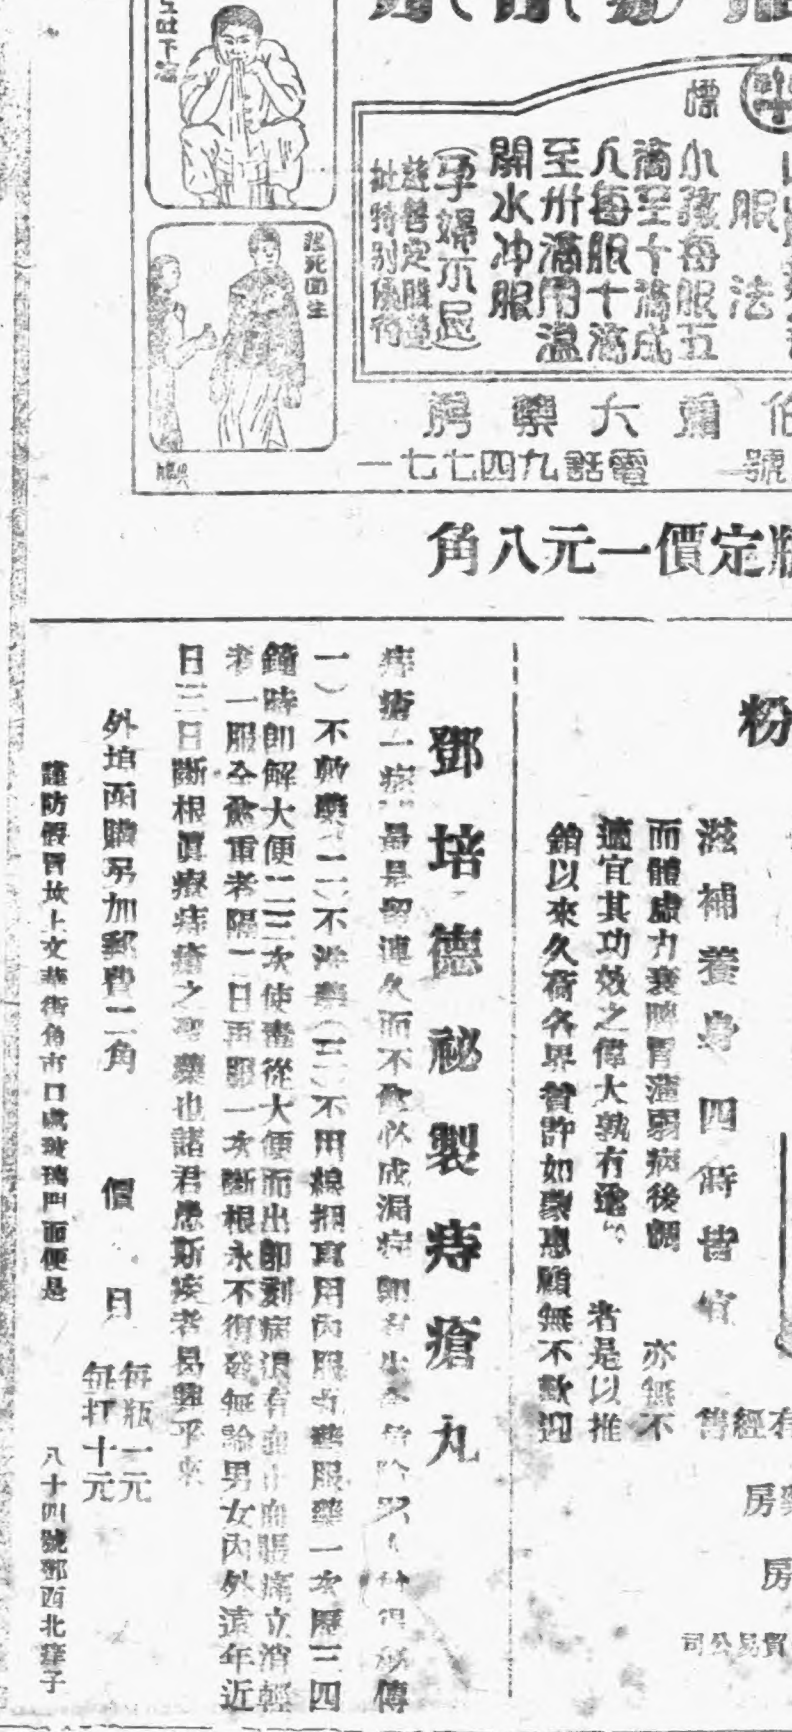 上吐下瀉
起死回生
標
服法
小孩每服五
滴至十滴成
人每服十滴
至卅滴用溫
開水冲服
(孕婦不忌)
慈善定購送
批特別優待
伯 爾大藥房
號 電話九四七七一
瓶定價一元八角
粉
滋補養身 四時皆宜
而體虛力衰脾胃薄弱病後調 亦無不
適宜其功效之偉大孰有逾 者是以推
銷以來久荷各界贊許如蒙惠顧無不歡迎
有經售
藥房
房
貿易公司
鄧培德祕製痔瘡丸
痔瘡一病 最是留連久而不愈必成漏症 傳
一)不敷藥(二)不洗藥(三)不用線捆真用內服丸藥服藥一次歷三四
鐘時即解大便二三次使毒從大便而出即刻病退有血止血腫痛立消輕
者一服全愈重者隔一日再服一次斷根永不復發無論男女內外遠年近
日三日斷根眞療痔瘡之聖藥也諸君患斯疾者曷興乎來
外埠函購另加郵費二角 價目 每瓶一元
每打十元
謹防假冒 上文華街角市口 玻璃門面便是 八十四號鄧西北 子